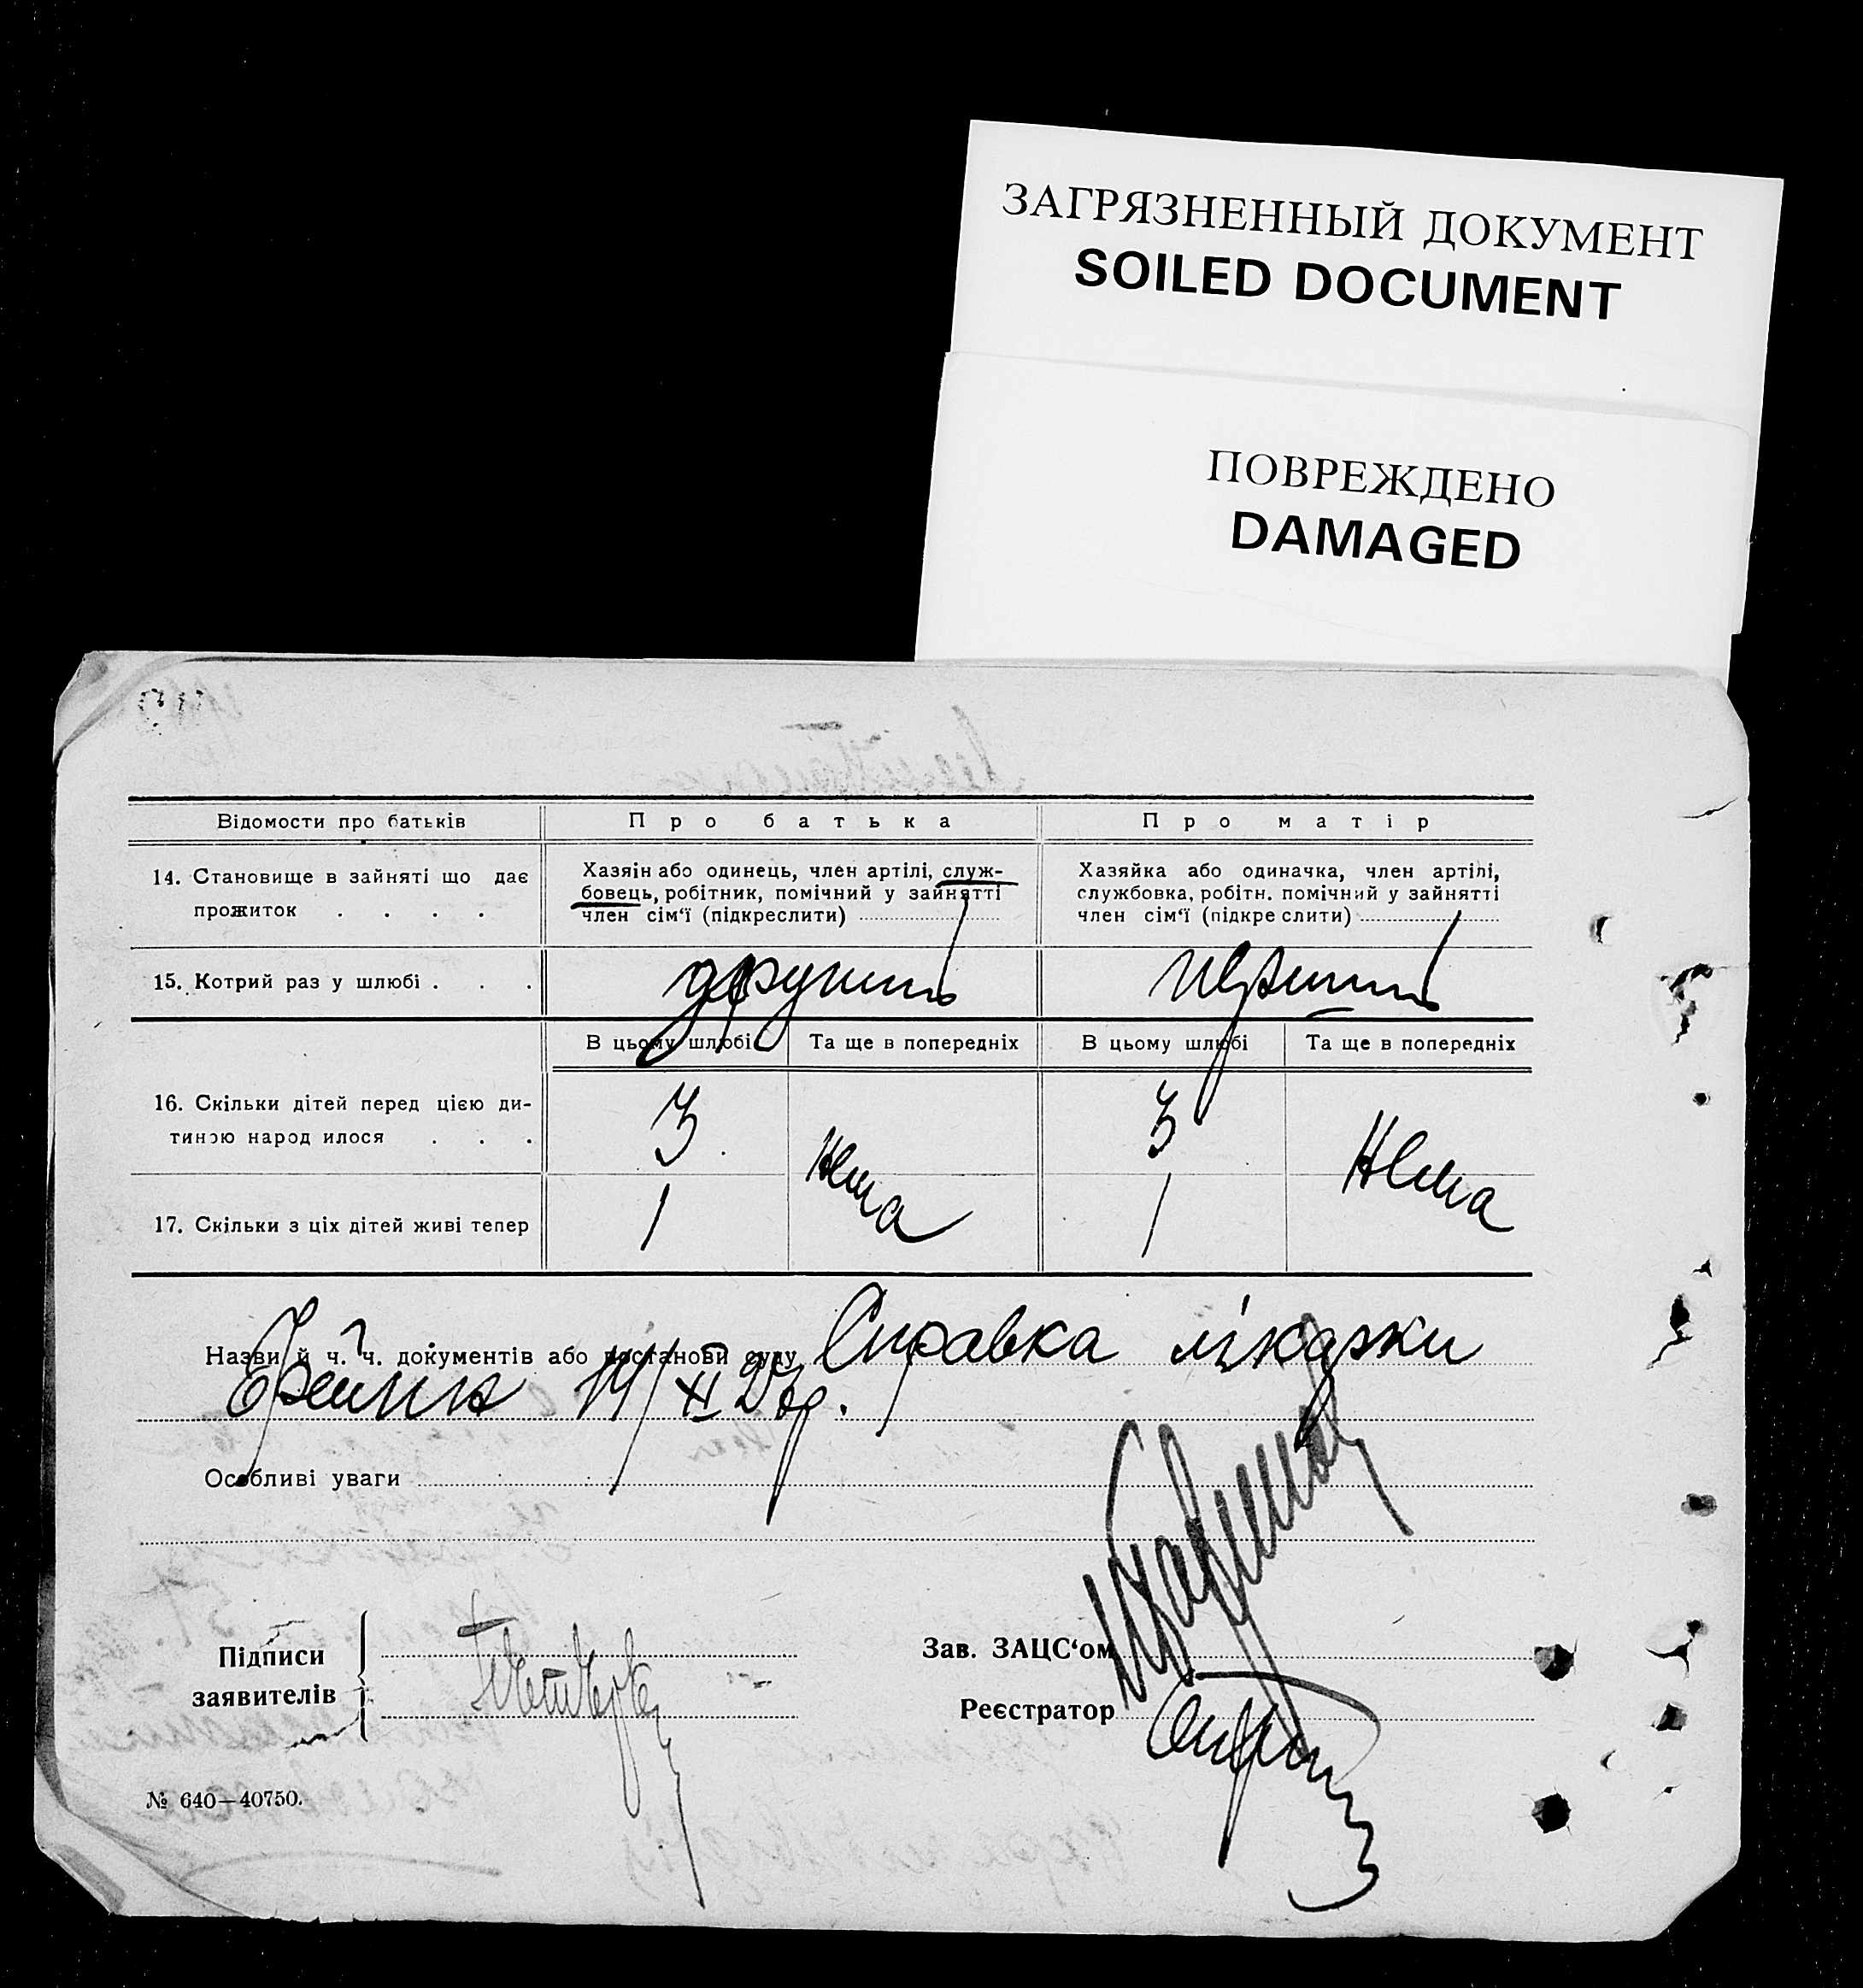 ЗАГРЯЗНЕННЫЙ ДОКУМЕНТ
SOILED DOCUMENT
ПОВРЕЖДЕНО
DAMAGED
Відомости про батьків
Про батька
Про матір
14. Становище в зайняті що дає
прожиток . . . .
Хазяін або одинець, член артілі, служ-
бовець, робітник, помічний у зайнятті
член сім‘ї (підкреслити)
Хазяйка або одиначка, член артілі,
службовка, робітн. помічний у зайнятті
член сім‘ї (підкре слити)
15. Котрий раз у шлюбі . . .
другий
перший
В цьому шлюбі
Та ще в попередніх
В цьому шлюбі
Та ще в попередніх
16. Скільки дітей перед цією ди-
тиною народ илося . . .
3
Нема
3
Нема
17. Скільки з ціх дітей живі тепер
1
1
Назви й ч. ч. документів або постанови суду Справка лікарки
14/XII
Особливі уваги
Підписи
заявителів
Зав. ЗАЦС‘ом
Реєстратор
№ 640—40750.